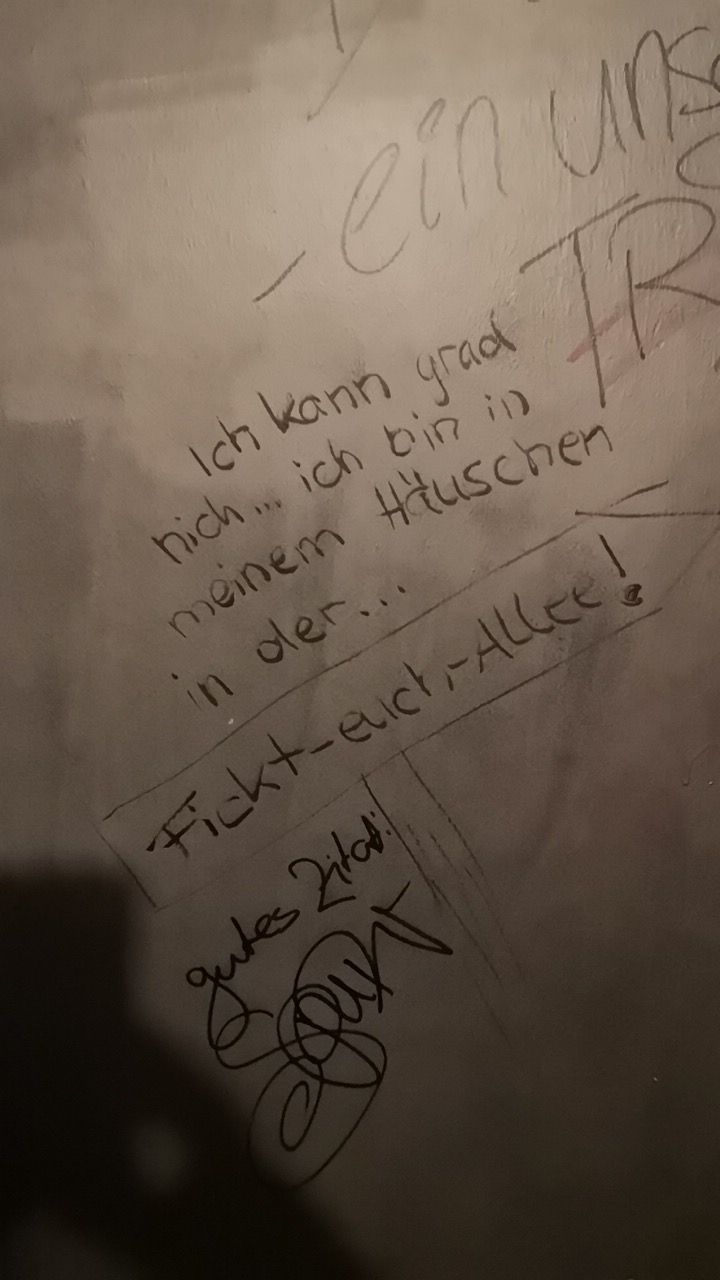 - ein uns
TR
Ich kann grad
nich... ich bin in
meinem Häuschen
in der...
Fickt-euch-Allee!
gutes Zitat!